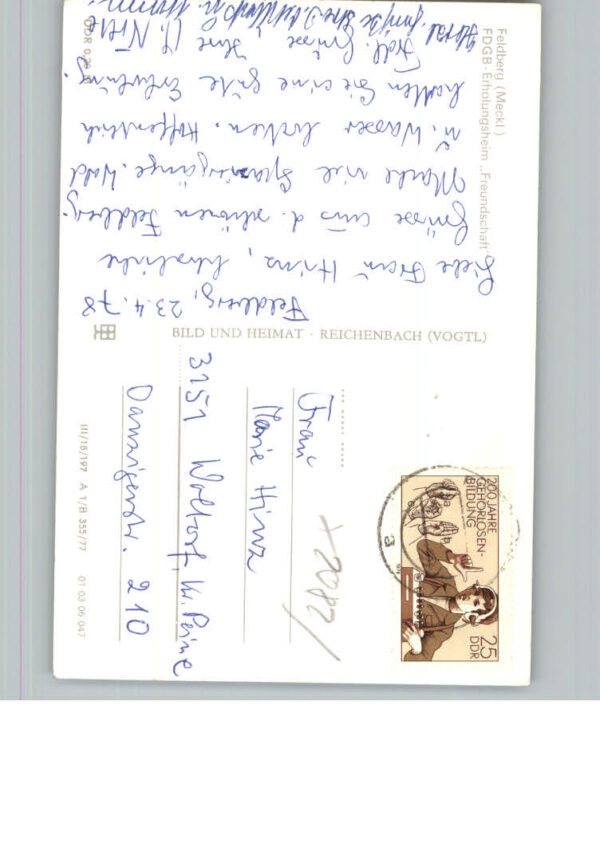 Feldberg (Meckl.)
FDGB-Erholungsheim „Freundschaft"
Feldberg, 23.4.78
Liebe Frau Hinz, herzliche
Grüsse aus d. schönen Feldberg.
Mache viel Spaziergänge. Wald
u. Wasser locken. Hoffentlich
hatten Sie eine gute Erholung.
Frdl. Grüsse Ihre
DDR 0,20
BILD UND HEIMAT · REICHENBACH (VOGTL)
III/18/197 A 1/B 355/77 01 03 06 047
200 JAHRE
GEHÖRLOSEN-
BILDUNG
a
b
25
DDR
a
Frau
Marie Hinz
3151 Woltorf, Kr. Peine
Danzigerstr. 210
+2082/